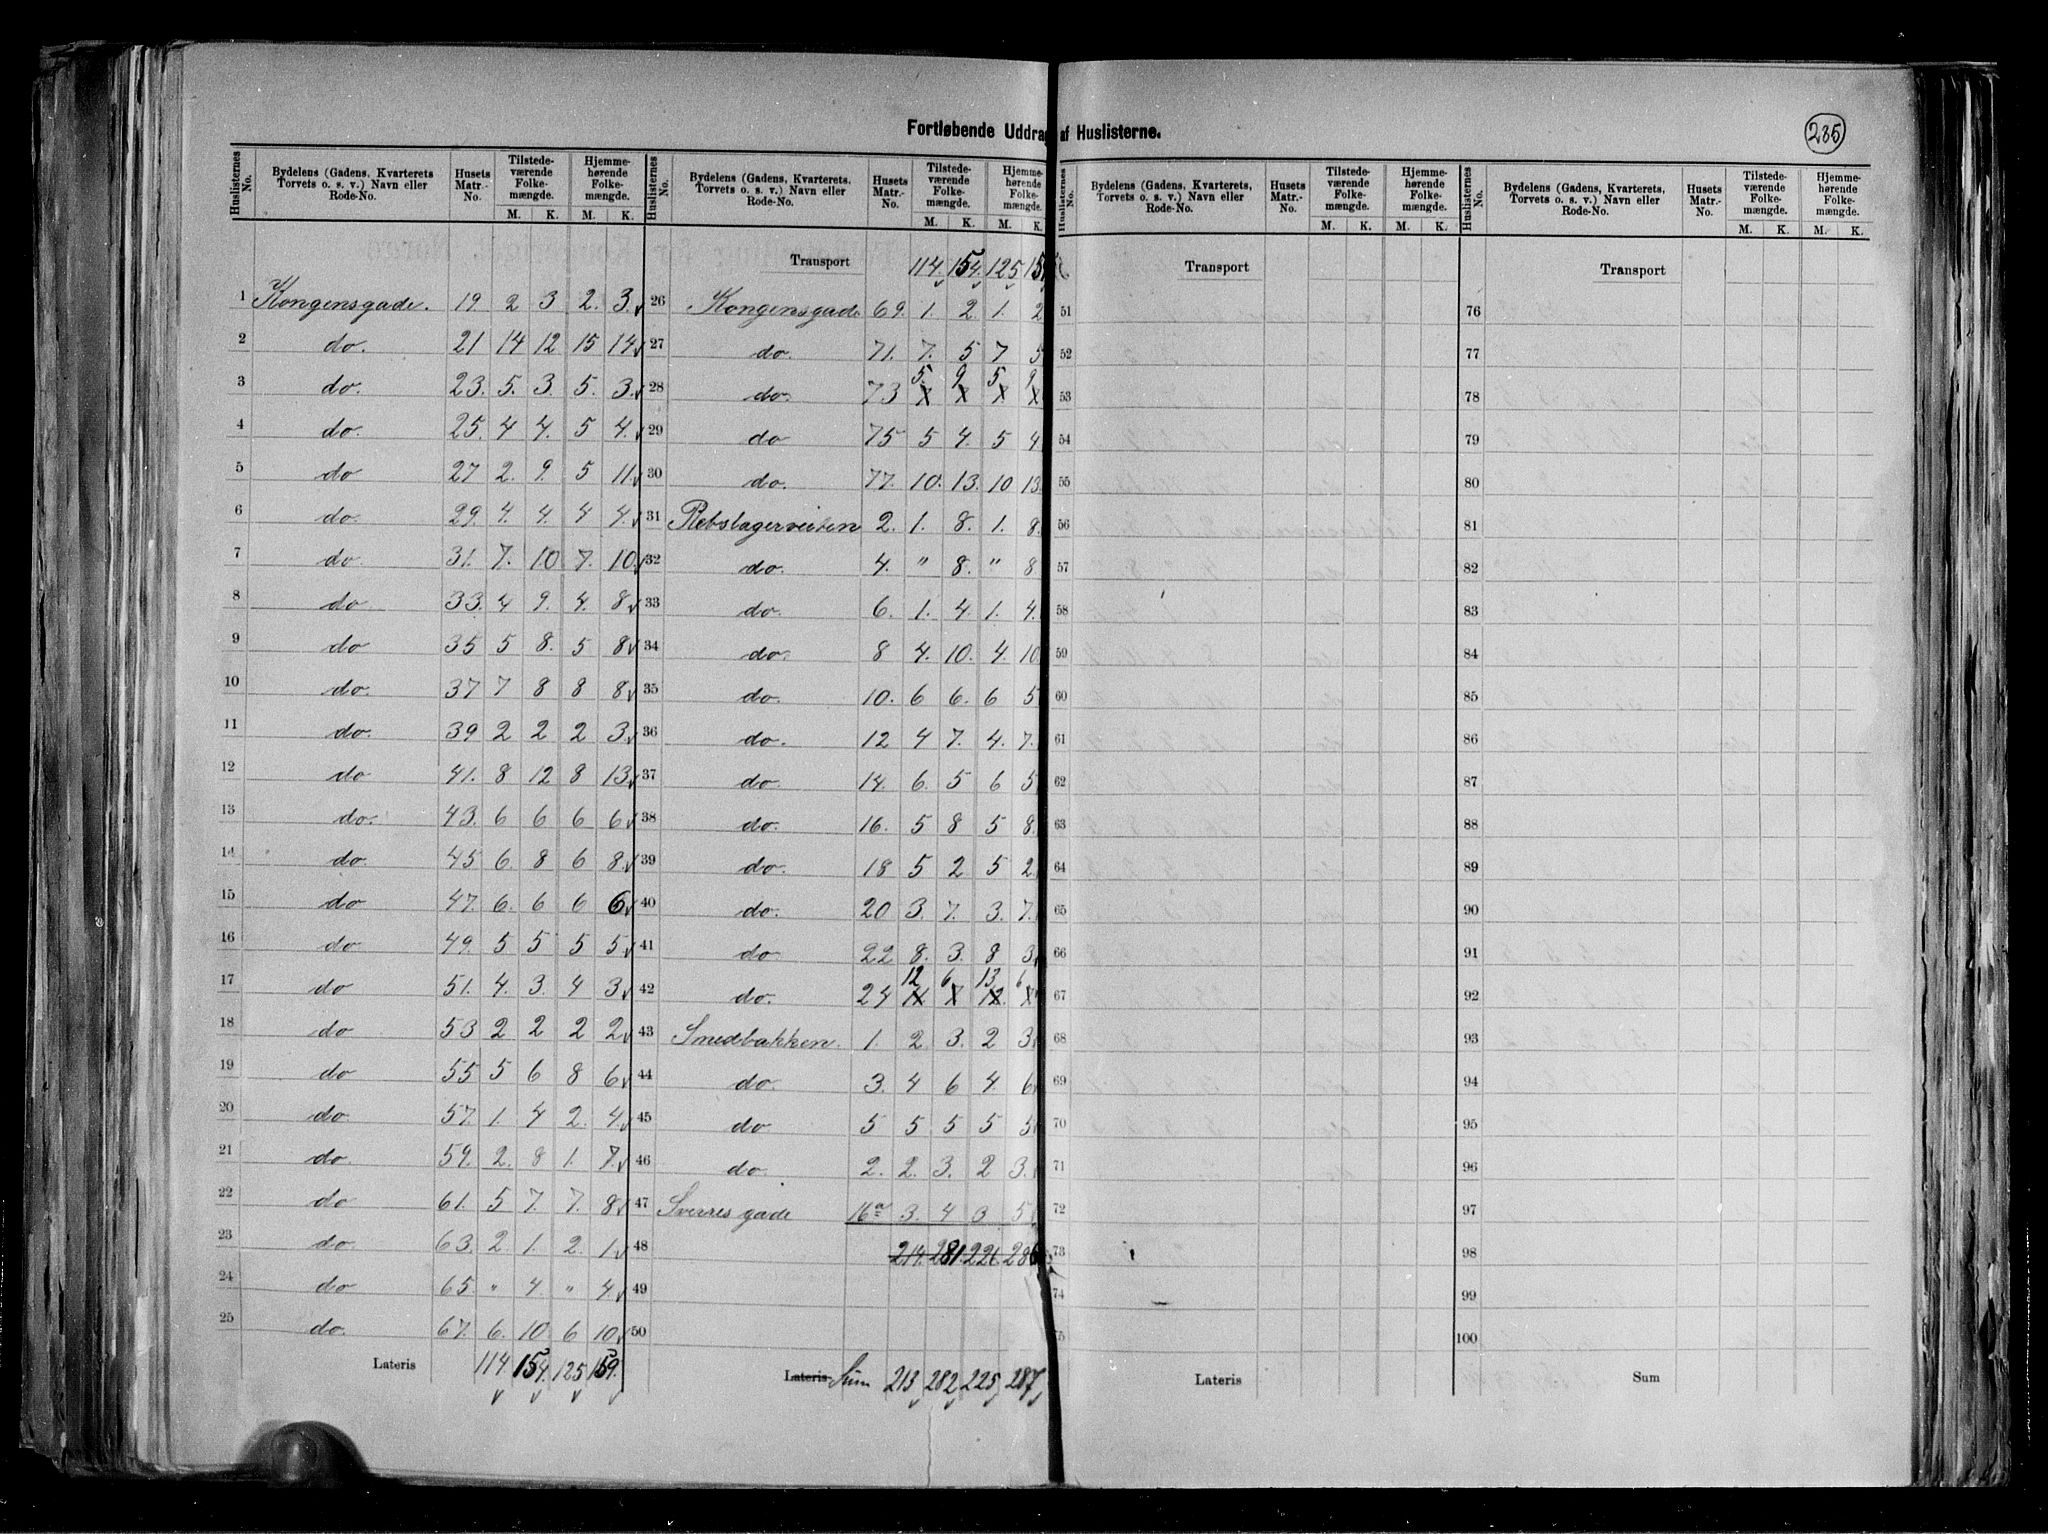 Fortløbende Uddrag af Huslisterne.
235
Huslisternes No. Bydelens (Gadens, Kvarterets, Torvets o. s. v.) Navn eller Rode-No. Husets Matr.-No. Tilstedeværende Folkemængde. M. K. Hjemmehørende Folkemængde. M. K.
1 Kongensgade. 19 2 3 2. 3.
2 do. 21 14 12 15 14
3 do 23. 5. 3. 5. 3.
4 do. 25. 4 4. 5 4.
5 do 27 2. 9. 5 11.
6 do. 29. 4. 4. 4 4.
7 do. 31. 7. 10 7. 10.
8 do 33. 4 9. 4. 8
9 do 35 5 8. 5 8
10 do. 37 7 8 8 8
11 do. 39 2 2 2 3
12 do 41. 8 12 8 13
13 do. 43. 6 6 6 6
14 do. 45 6. 8 6 8.
15 do 47. 6. 6 6 6
16 do 49. 5 5 5 5
17 do 51. 4. 3. 4 3
18 do 53 2 2 2 2
19 do 55 5 6 8 6
20 do 57. 1. 4 2. 4.
21 do 59. 2. 8 1. 7.
22 do 61. 5 7. 7. 8
23 do. 63. 2. 1. 2. 1
24 do 65. " 4 " 4
25 do. 67. 6. 10. 6 10.
Lateris 114 154. 125 159.
Huslisternes No. Bydelens (Gadens, Kvarterets, Torvets o. s. v.) Navn eller Rode-No. Husets Matr.-No. Tilstedeværende Folkemængde. M. K. Hjemmehørende Folkemængde. M. K.
Transport 114. 154. 125
26 Kongensgade 69. 1. 2. 1. 2
27 do. 71. 7. 5 7 5
28 do. 73 5. 9 5 9
29 do 75 5 4. 5 4
30 do. 77. 10. 13. 10 13.
31 Rebslagerveiten 2. 1. 8. 1. 8.
32 do. 4. " 8. " 8
33 do. 6. 1. 4. 1. 4.
34 do. 8 4. 10. 4. 10
35 do. 10. 6 6. 6 5
36 do. 12 4 7. 4. 7.
37 do. 14. 6. 5 6 5
38 do. 16. 5 8 5 8.
39 do. 18 5 2 5 2
40 do. 20 3. 7. 3. 7.
41 do 22 8. 3. 8 3
42 do. 24 12 6 13 6
43 Smedbakken. 1. 2. 3. 2 3
44 do. 3. 4 6 4. 6
45 do 5 5 5 5 5
46 do. 2. 2. 3. 2 3.
47 Sverresgade 16a 3. 4 3. 5
48 214. 281. 226 286
49
50
Lateris Sum 213 282 225 287
Huslisternes No. Bydelens (Gadens, Kvarterets, Torvets o. s. v.) Navn eller Rode-No. Husets Matr.-No. Tilstedeværende Folkemængde. M. K. Hjemmehørende Folkemængde. M. K.
Transport
51
52
53
54
55
56
57
58
59
60
61
62
63
64
65
66
67
68
69
70
71
72
73
74
75
Lateris
Huslisternes No. Bydelens (Gadens, Kvarterets, Torvets o. s. v.) Navn eller Rode-No. Husets Matr.-No. Tilstedeværende Folkemængde. M. K. Hjemmehørende Folkemængde. M. K.
Transport
76
77
78
79
80
81
82
83
84
85
86
87
88
89
90
91
92
93
94
95
96
97
98
99
100
Sum